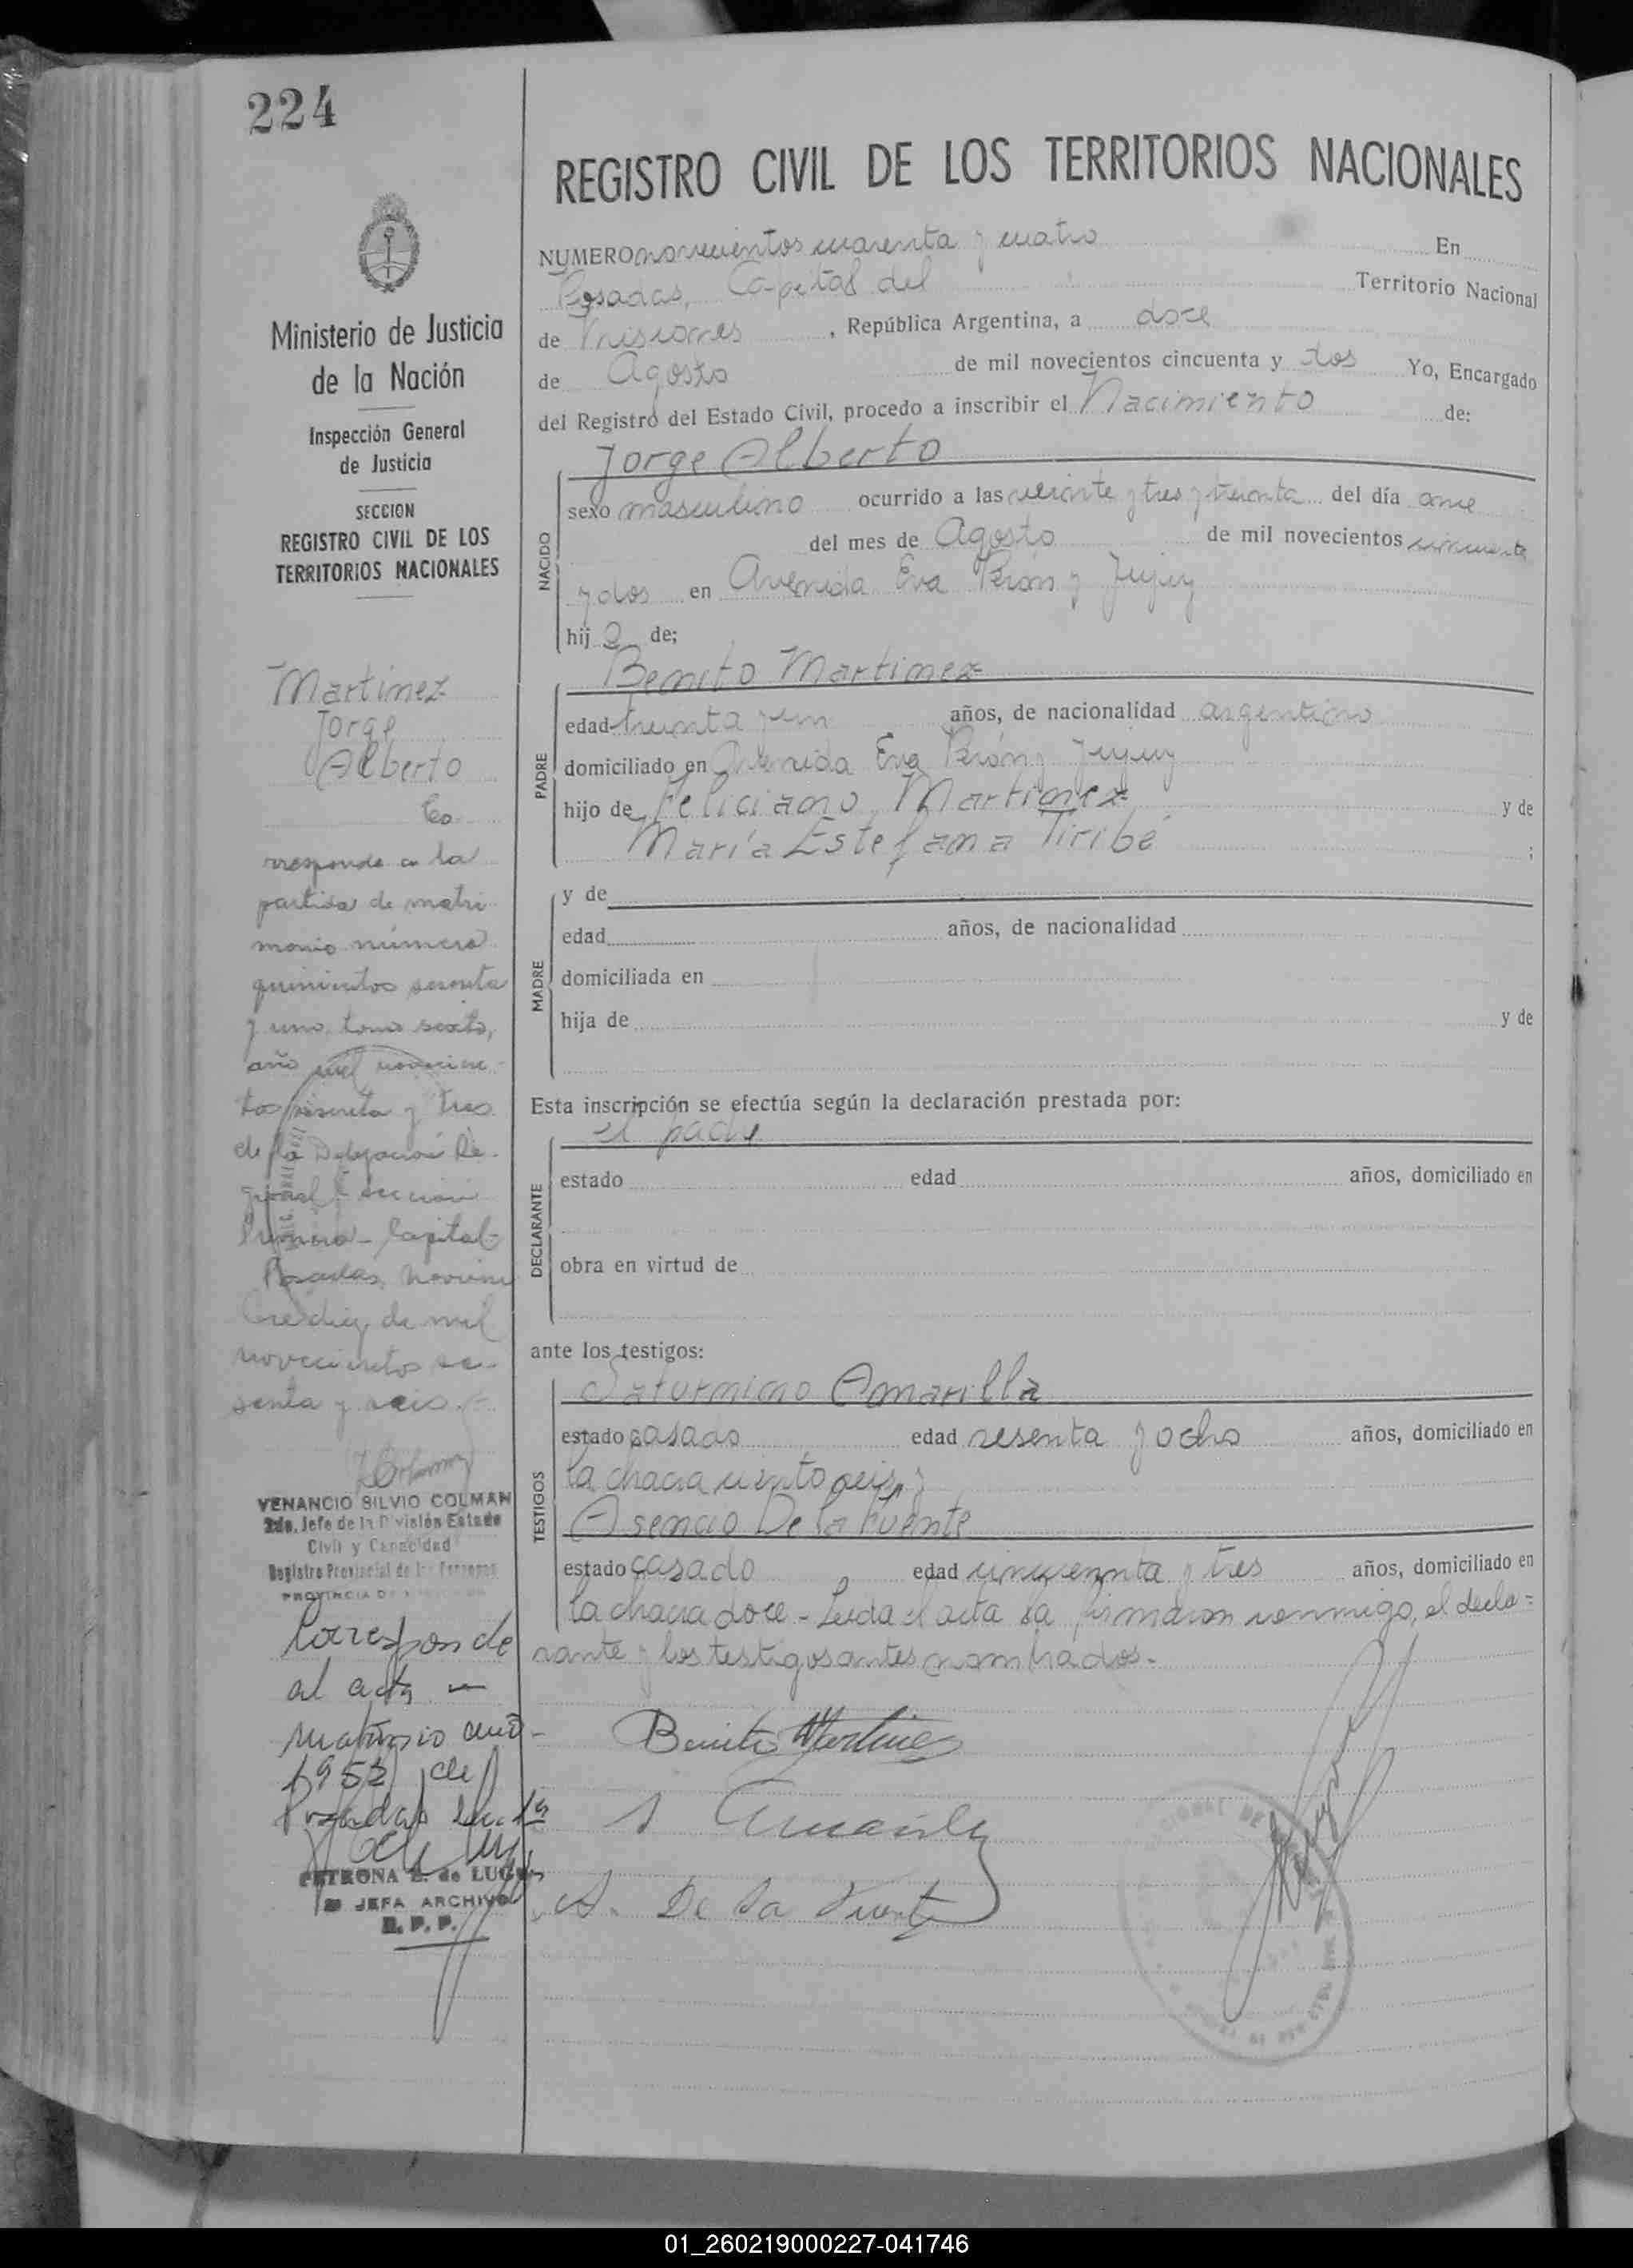 224
Ministerio de Justicia
de la Nación
Inspección General
de Justicia
SECCION
REGISTRO CIVIL DE LOS
TERRITORIOS NACIONALES
Martinez
Jorge
Alberto
Co
rresponde a la
partida de matri
monio número
quinientos sesenta
y uno, tomo sexto,
año mil novecien-
tos sesenta y tres
de la Delegación Re-
gional Sección
Primera - Capital-
Posadas, Noviem
bre diez de mil
novecientos se-
senta y seis.
VENANCIO SILVIO COLMAN
2do. Jefe de la División Estado
Civil y Capacidad
Registro Provincial de las Personas
PROVINCIA DE
Corresponde
al acta
1952 de
Posadas
PETRONA de LUGO
JEFA ARCHIVO
R. P. P.
REGISTRO CIVIL DE LOS TERRITORIOS NACIONALES
NUMERO novecientos cuarenta y cuatro En
Posadas, Capital del Territorio Nacional
de Misiones, República Argentina, a doce
de Agosto de mil novecientos cincuenta y dos Yo, Encargado
del Registro del Estado Civil, procedo a inscribir el Nacimiento de:
Jorge Alberto
NACIDO
sexo masculino ocurrido a las veinte y tres y treinta del día once
del mes de Agosto de mil novecientos cincuenta
y dos en Avenida Eva Perón y Jujuy
hijo de;
Benito Martinez
PADRE
edad treinta y un años, de nacionalidad argentino
domiciliado en Avenida Eva Perón y Jujuy
hijo de Feliciano Martinez y de
María Estefana Tiribé ;
MADRE
y de
edad años, de nacionalidad
domiciliada en
hija de y de
Esta inscripción se efectúa según la declaración prestada por:
el padre
DECLARANTE
estado edad años, domiciliado en
obra en virtud de
ante los testigos:
Saturnino Amarilla
TESTIGOS
estado casado edad sesenta y ocho años, domiciliado en
la chacra ciento seis y
Asencio De la Fuente
estado casado edad cincuenta y tres años, domiciliado en
la chacra doce - Leida el acta la firmaron conmigo, el decla=
rante y los testigos antes nombrados.-
Benito Martinez
A. De la Fuente
01_260219000227-041746